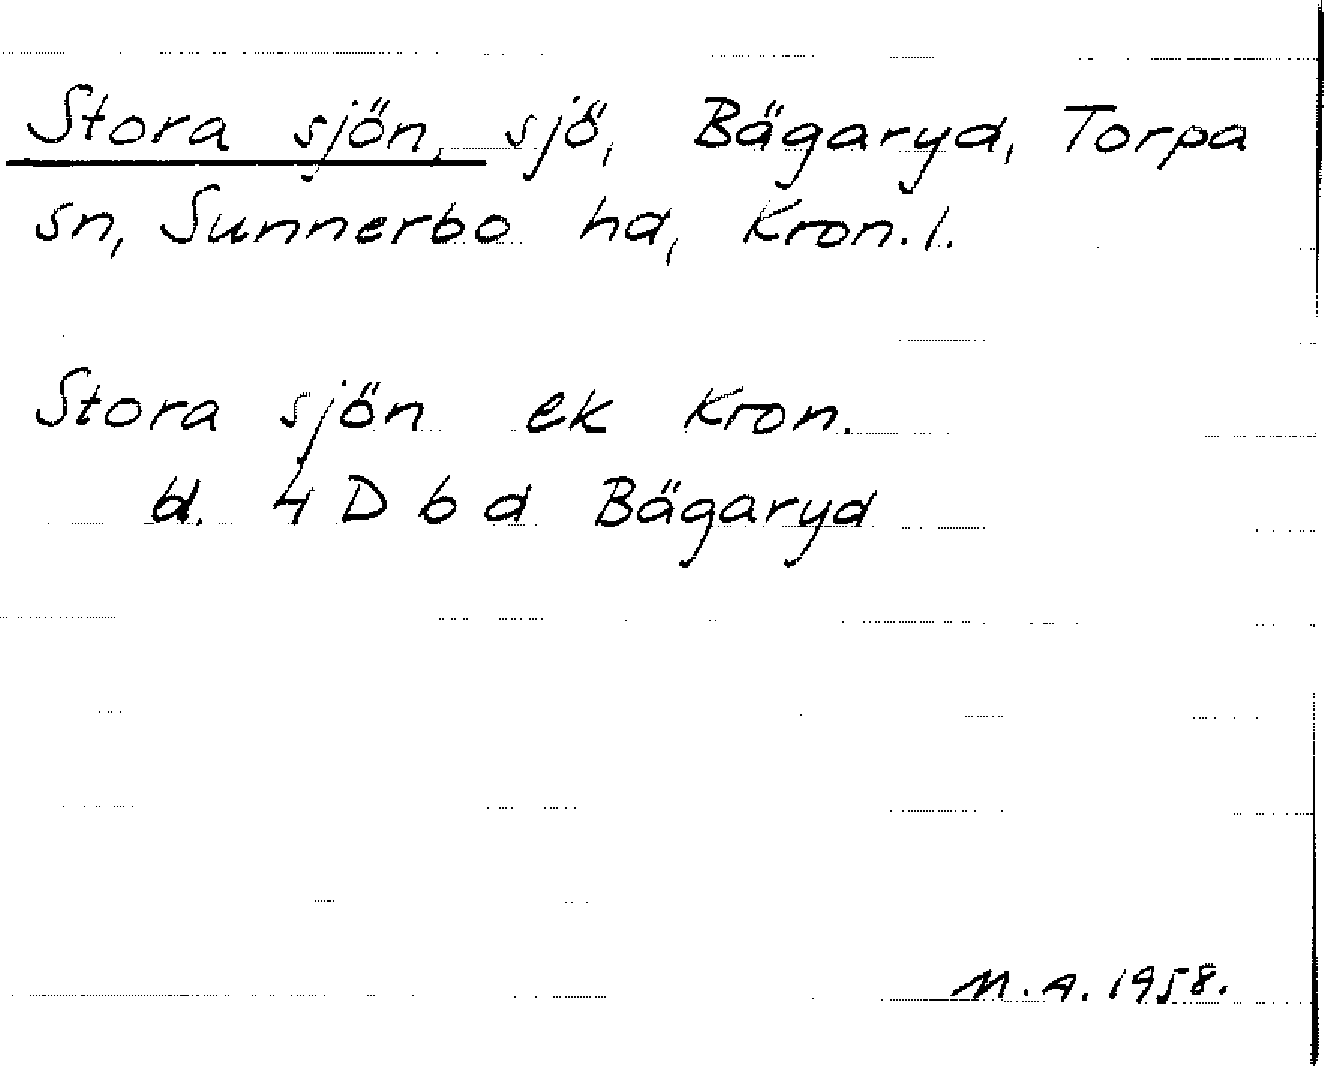 Stora sjön, sjö, Bägaryd, Torpa
sn, Sunnerbo hd, Kron. l.
Stora sjön ek Kron.
bl. 4 D b d Bägaryd
M. A. 1958.